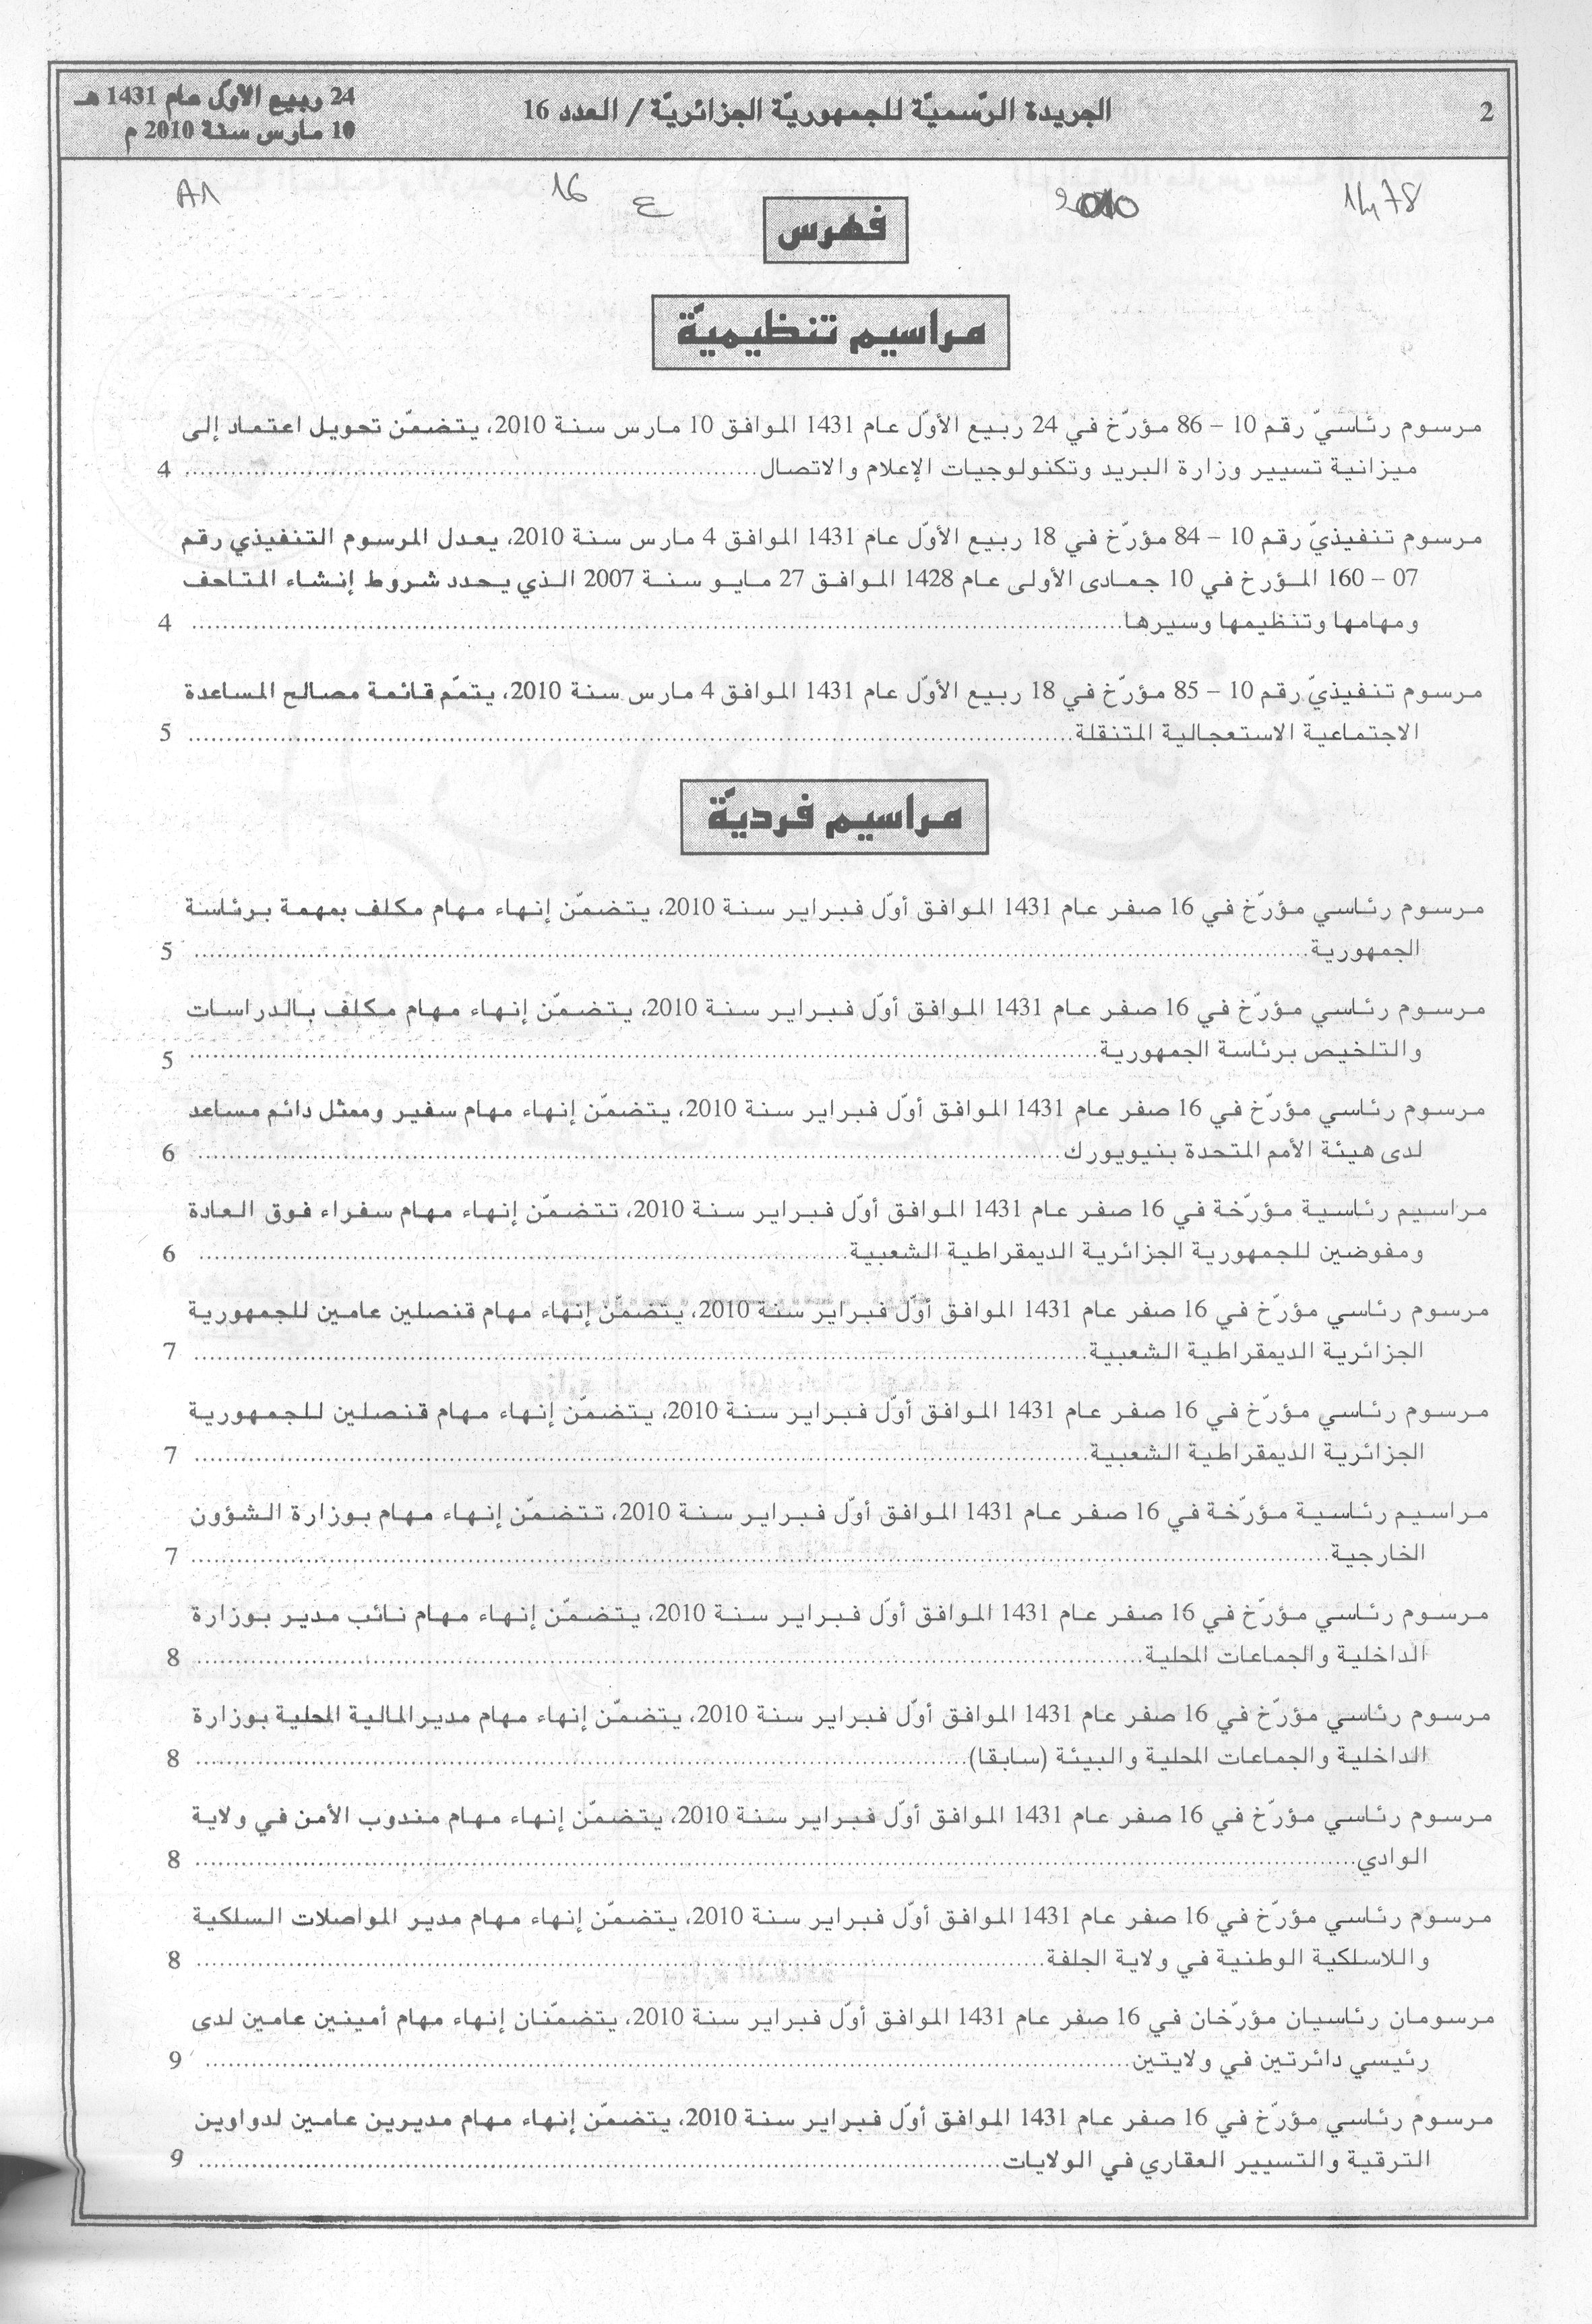 2
الجريدة الرّسميّة للجمهوريّة الجزائريّة / العدد 16
24 ربيع الأوّل عام 1431 هـ
10 مارس سنة 2010 م
1478 2010 ع 16 A1
فهرس
مراسيم تنظيميّة
مرسوم رئاسيّ رقم 10 – 86 مؤرّخ في 24 ربيع الأوّل عام 1431 الموافق 10 مارس سنة 2010، يتضمّن تحويل اعتماد إلى
ميزانية تسيير وزارة البريد وتكنولوجيات الإعلام والاتصال........ 4
مرسوم تنفيذيّ رقم 10 – 84 مؤرّخ في 18 ربيع الأوّل عام 1431 الموافق 4 مارس سنة 2010، يعدل المرسوم التنفيذي رقم
07 – 160 المؤرخ في 10 جمادى الأولى عام 1428 الموافق 27 مايو سنة 2007 الذي يحدد شروط إنشاء المتاحف
ومهامها وتنظيمها وسيرها........ 4
مرسوم تنفيذيّ رقم 10 – 85 مؤرّخ في 18 ربيع الأوّل عام 1431 الموافق 4 مارس سنة 2010، يتمّم قائمة مصالح المساعدة
الاجتماعية الاستعجالية المتنقلة........ 5
مراسيم فرديّة
مرسوم رئاسي مؤرّخ في 16 صفر عام 1431 الموافق أوّل فبراير سنة 2010، يتضمّن إنهاء مهام مكلف بمهمة برئاسة
الجمهورية........ 5
مرسوم رئاسي مؤرّخ في 16 صفر عام 1431 الموافق أوّل فبراير سنة 2010، يتضمّن إنهاء مهام مكلف بالدراسات
والتلخيص برئاسة الجمهورية........ 5
مرسوم رئاسي مؤرّخ في 16 صفر عام 1431 الموافق أوّل فبراير سنة 2010، يتضمّن إنهاء مهام سفير وممثل دائم مساعد
لدى هيئة الأمم المتحدة بنيويورك........ 6
مراسيم رئاسية مؤرّخة في 16 صفر عام 1431 الموافق أوّل فبراير سنة 2010، تتضمّن إنهاء مهام سفراء فوق العادة
ومفوضين للجمهورية الجزائرية الديمقراطية الشعبية........ 6
مرسوم رئاسي مؤرّخ في 16 صفر عام 1431 الموافق أوّل فبراير سنة 2010، يتضمّن إنهاء مهام قنصلين عامين للجمهورية
الجزائرية الديمقراطية الشعبية........ 7
مرسوم رئاسي مؤرّخ في 16 صفر عام 1431 الموافق أوّل فبراير سنة 2010، يتضمّن إنهاء مهام قنصلين للجمهورية
الجزائرية الديمقراطية الشعبية........ 7
مراسيم رئاسية مؤرّخة في 16 صفر عام 1431 الموافق أوّل فبراير سنة 2010، تتضمّن إنهاء مهام بوزارة الشؤون
الخارجية........ 7
مرسوم رئاسي مؤرّخ في 16 صفر عام 1431 الموافق أوّل فبراير سنة 2010، يتضمّن إنهاء مهام نائب مدير بوزارة
الداخلية والجماعات المحلية........ 8
مرسوم رئاسي مؤرّخ في 16 صفر عام 1431 الموافق أوّل فبراير سنة 2010، يتضمّن إنهاء مهام مدير المالية المحلية بوزارة
الداخلية والجماعات المحلية والبيئة (سابقا)........ 8
مرسوم رئاسي مؤرّخ في 16 صفر عام 1431 الموافق أوّل فبراير سنة 2010، يتضمّن إنهاء مهام مندوب الأمن في ولاية
الوادي........ 8
مرسوم رئاسي مؤرّخ في 16 صفر عام 1431 الموافق أوّل فبراير سنة 2010، يتضمّن إنهاء مهام مدير المواصلات السلكية
واللاسلكية الوطنية في ولاية الجلفة........ 8
مرسومان رئاسيان مؤرّخان في 16 صفر عام 1431 الموافق أوّل فبراير سنة 2010، يتضمّنان إنهاء مهام أمينين عامين لدى
رئيسي دائرتين في ولايتين........ 9
مرسوم رئاسي مؤرّخ في 16 صفر عام 1431 الموافق أوّل فبراير سنة 2010، يتضمّن إنهاء مهام مديرين عامين لدواوين
الترقية والتسيير العقاري في الولايات........ 9